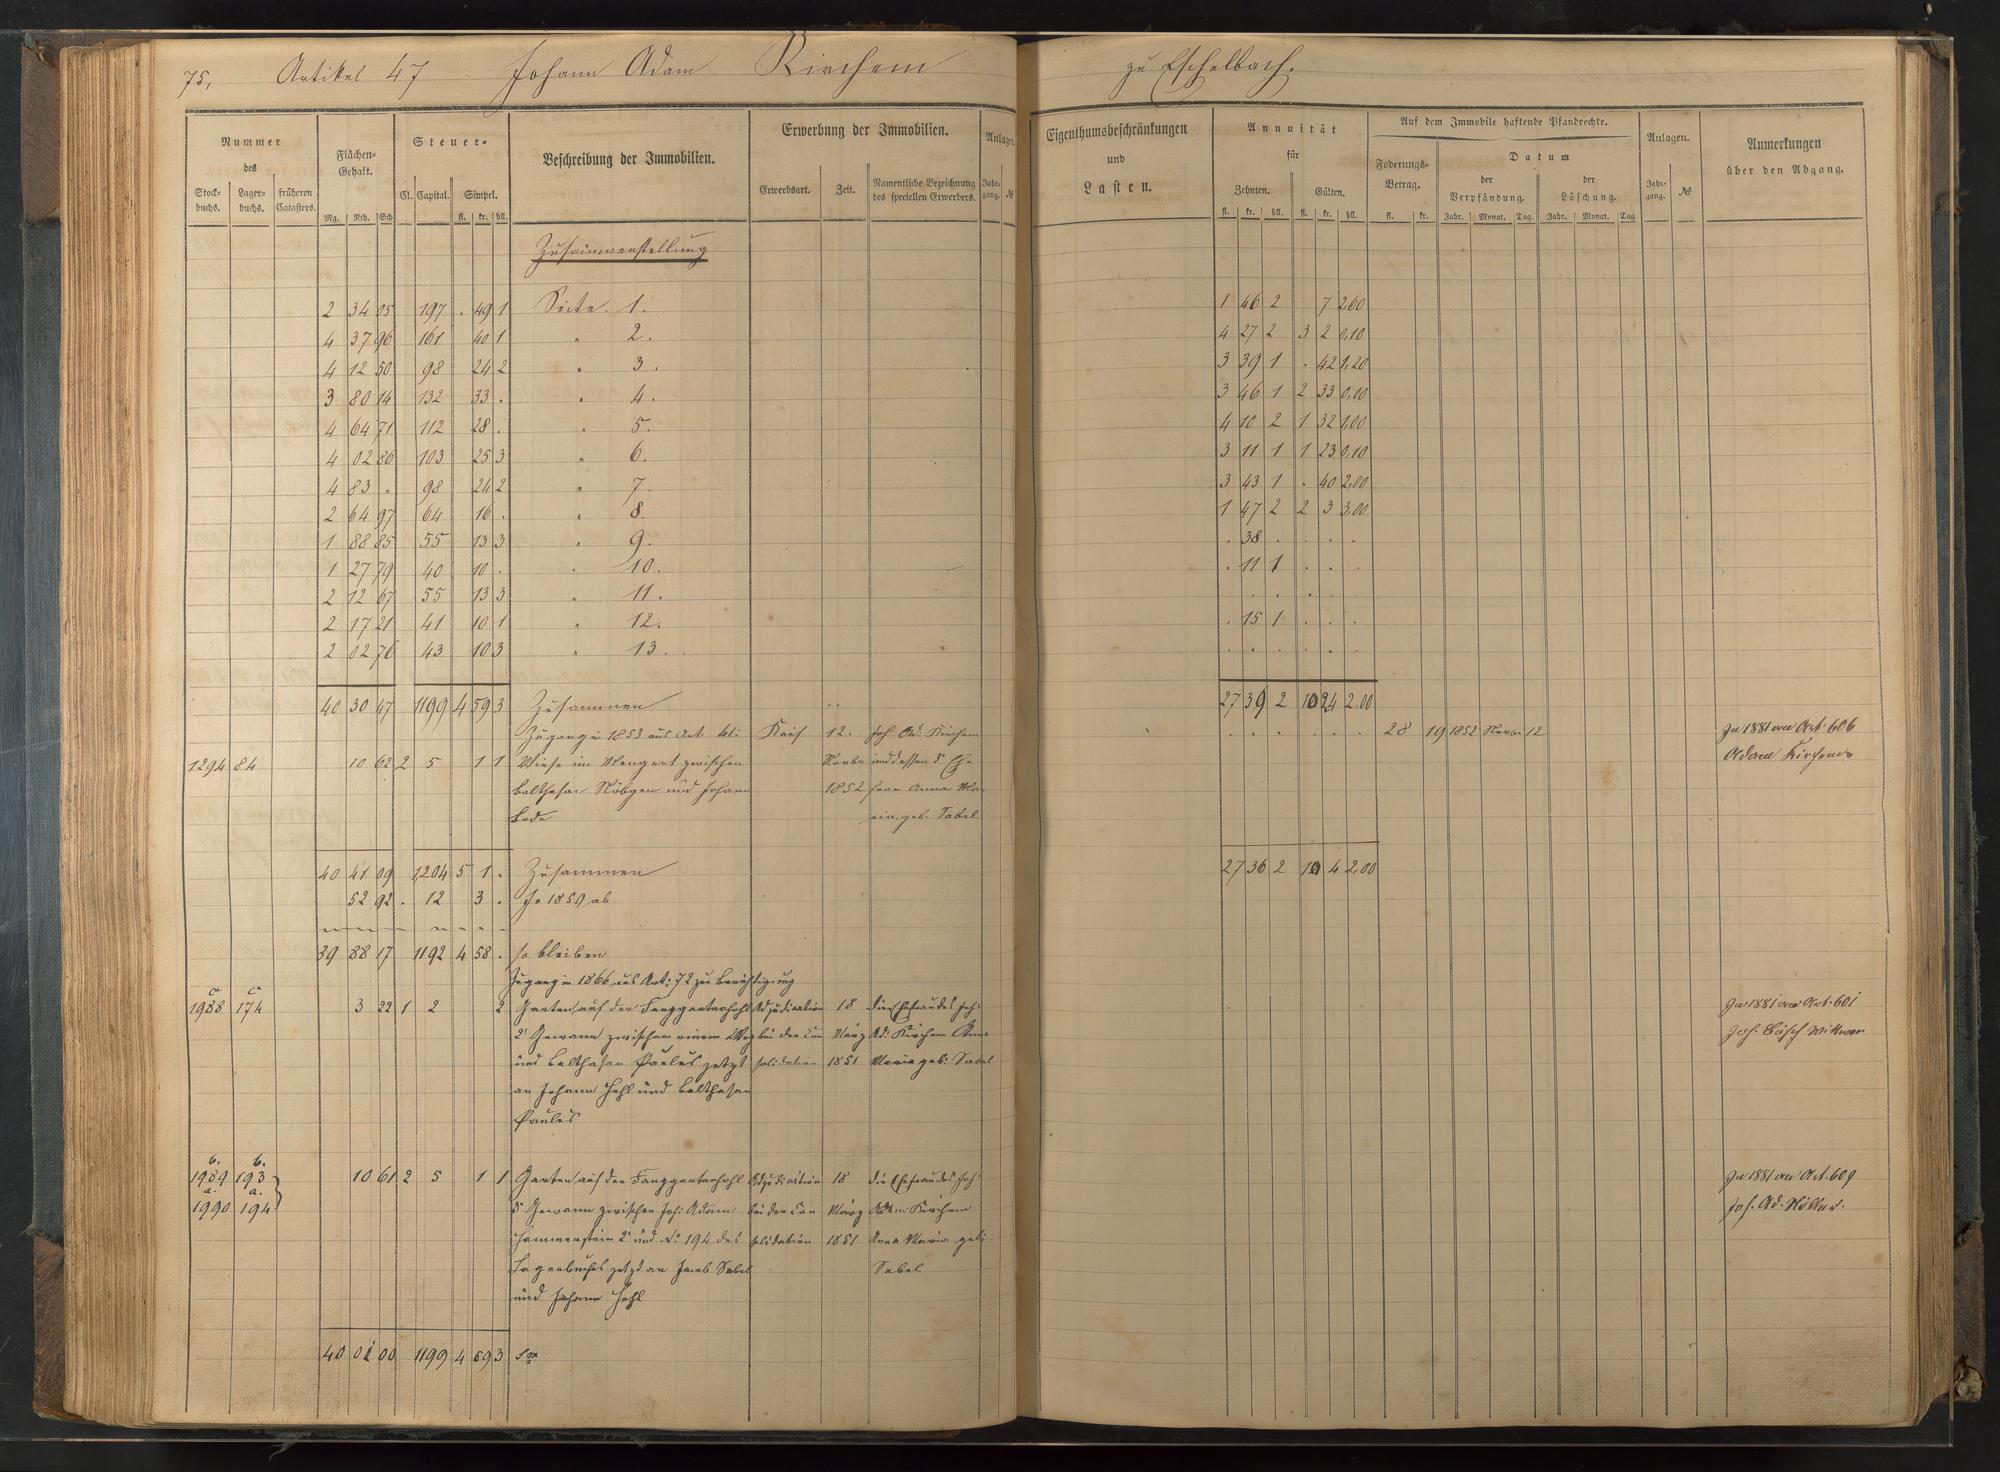 75, Artikel 47 Johann Adam Kirchem zu Eschelbach.
Nummer des
Stock-buchs. Lager-buchs. früheren Catasters.
Flächen-Gehalt.
Mg. Rth. Sch
Steuer-
Cl. Capital. Simpel.
fl. kr. hll.
Beschreibung der Immobilien.
Erwerbung der Immobilien.
Erwerbsart. Zeit. Namentliche Bezeichnung des speciellen Erwerbers.
Anlagen.
Jahr-gang. №
Eigenthumsbeschränkungen und Lasten.
Annuität für
Zehnten. Gülten.
fl. kr. hll. fl. kr. hll.
Auf dem Immobile haftende Pfandrechte.
Foderungs-Betrag.
fl. kr.
Datum
der Verpfändung. der Löschung.
Jahr. Monat. Tag. Jahr. Monat. Tag
Anlagen.
Jahr-gang. №
Anmerkungen über den Abgang.
Zusammenstellung
2 34 05 197 . 49 1 Seite. 1. 1 46 2 7 2,60
4 37 96 161 40 1 " 2. 4 27 2 3 2 0,10
4 12 50 98 24 2 " 3. 3 39 1 . 42 1,20
3 80 14 132 33 . " 4. 3 46 1 2 33 0,00
4 64 71 112 28 . " 5. 4 10 2 1 32 1,00
4 02 86 103 25 3 " 6. 3 11 1 1 23 0,10
4 83 . 98 24 2 " 7. 3 43 1 . 40 2,00
2 64 97 64 16 . " 8. 1 47 2 2 3 3,00
1 88 85 55 13 3 " 9. . 38 . . . .
1 27 79 40 10 . " 10. . 11 1 . . .
2 12 67 55 13 3 " 11. . . .
2 17 21 41 10 1 " 12. . 15 1 . . .
2 02 76 43 10 3 " 13. . . . . . .
40 30 47 1199 4 59 3 Zusammen 27 39 2 10 24 2,00
Zugang in 1853 aus Art. Kauf 12. Joh. Ad. Kirchem . . . . . . 28 19 1852 Novbr 12 In 1881 an Art. 606
1294 84 10 62 2 5 1 1 Wiese im Wengert zwischen Novbr und dessen Ehe Adam Kirchem
Balthasar Nöbgen und Johann 1852 frau Anna Ma-
Bode ria geb. Sabel
40 41 09 1204 5 1 . Zusammen 27 36 2 10 4 2,00
52 92 . 12 3 . In 1859 ab
39 88 17 1192 4 58 . so bleiben
Zugang in 1866 aus Art: 72 zur Berichtigung
c c
1988 174 3 22 1 2 2 Garten auf der Adjudication 18 die Ehefrau des Joh: In 1881 an Art. 601
2t Gewann zwischen einem Weg bei der Con März Ad: Kirchem Anna Joh.
und Balthasar Paulus jetzt solidation 1851 Maria geb: Sabel
an Johann Hehl und Balthasar
Paulus
b. b.
1989 193 10 61 2 5 1 1 Garten auf der Adjudication 18 die Ehefrau des Joh: In 1881 an Art. 609
a. a.
1990 194 5t Gewann zwischen Joh: Adam bei der Con März Adam Kirchem Joh. Ad.
Hammerstein 2t und No. 194 des solidation 1851 Anna Maria geb:
Lagerbuchs jetzt an Jacob Sabel Sabel
und Johann Hehl
40 01 00 1199 4 59 3